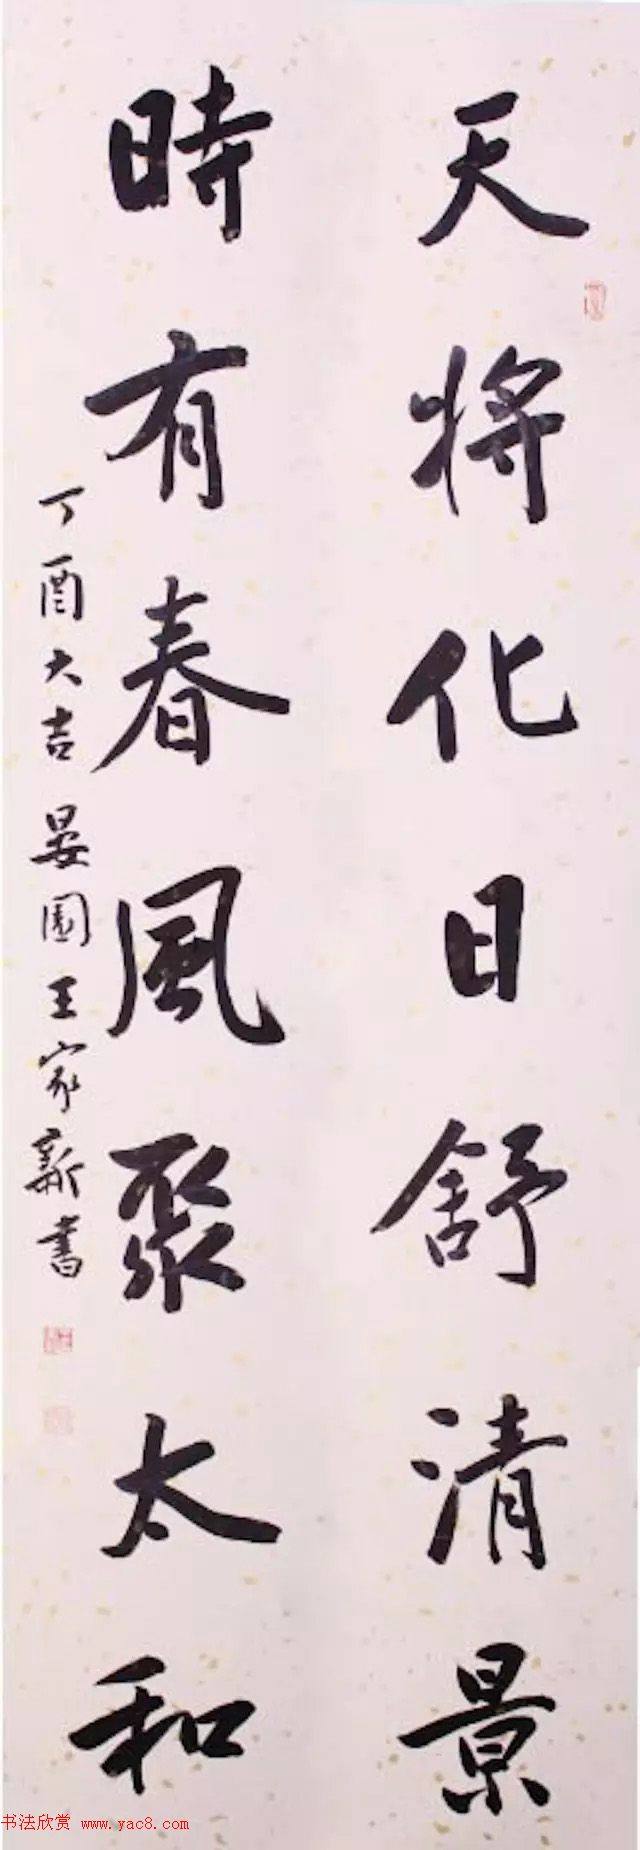 天將化日舒清景
時有春風聚太和
丁酉大吉晏園王家新書
书法欣赏 www.yac8.com